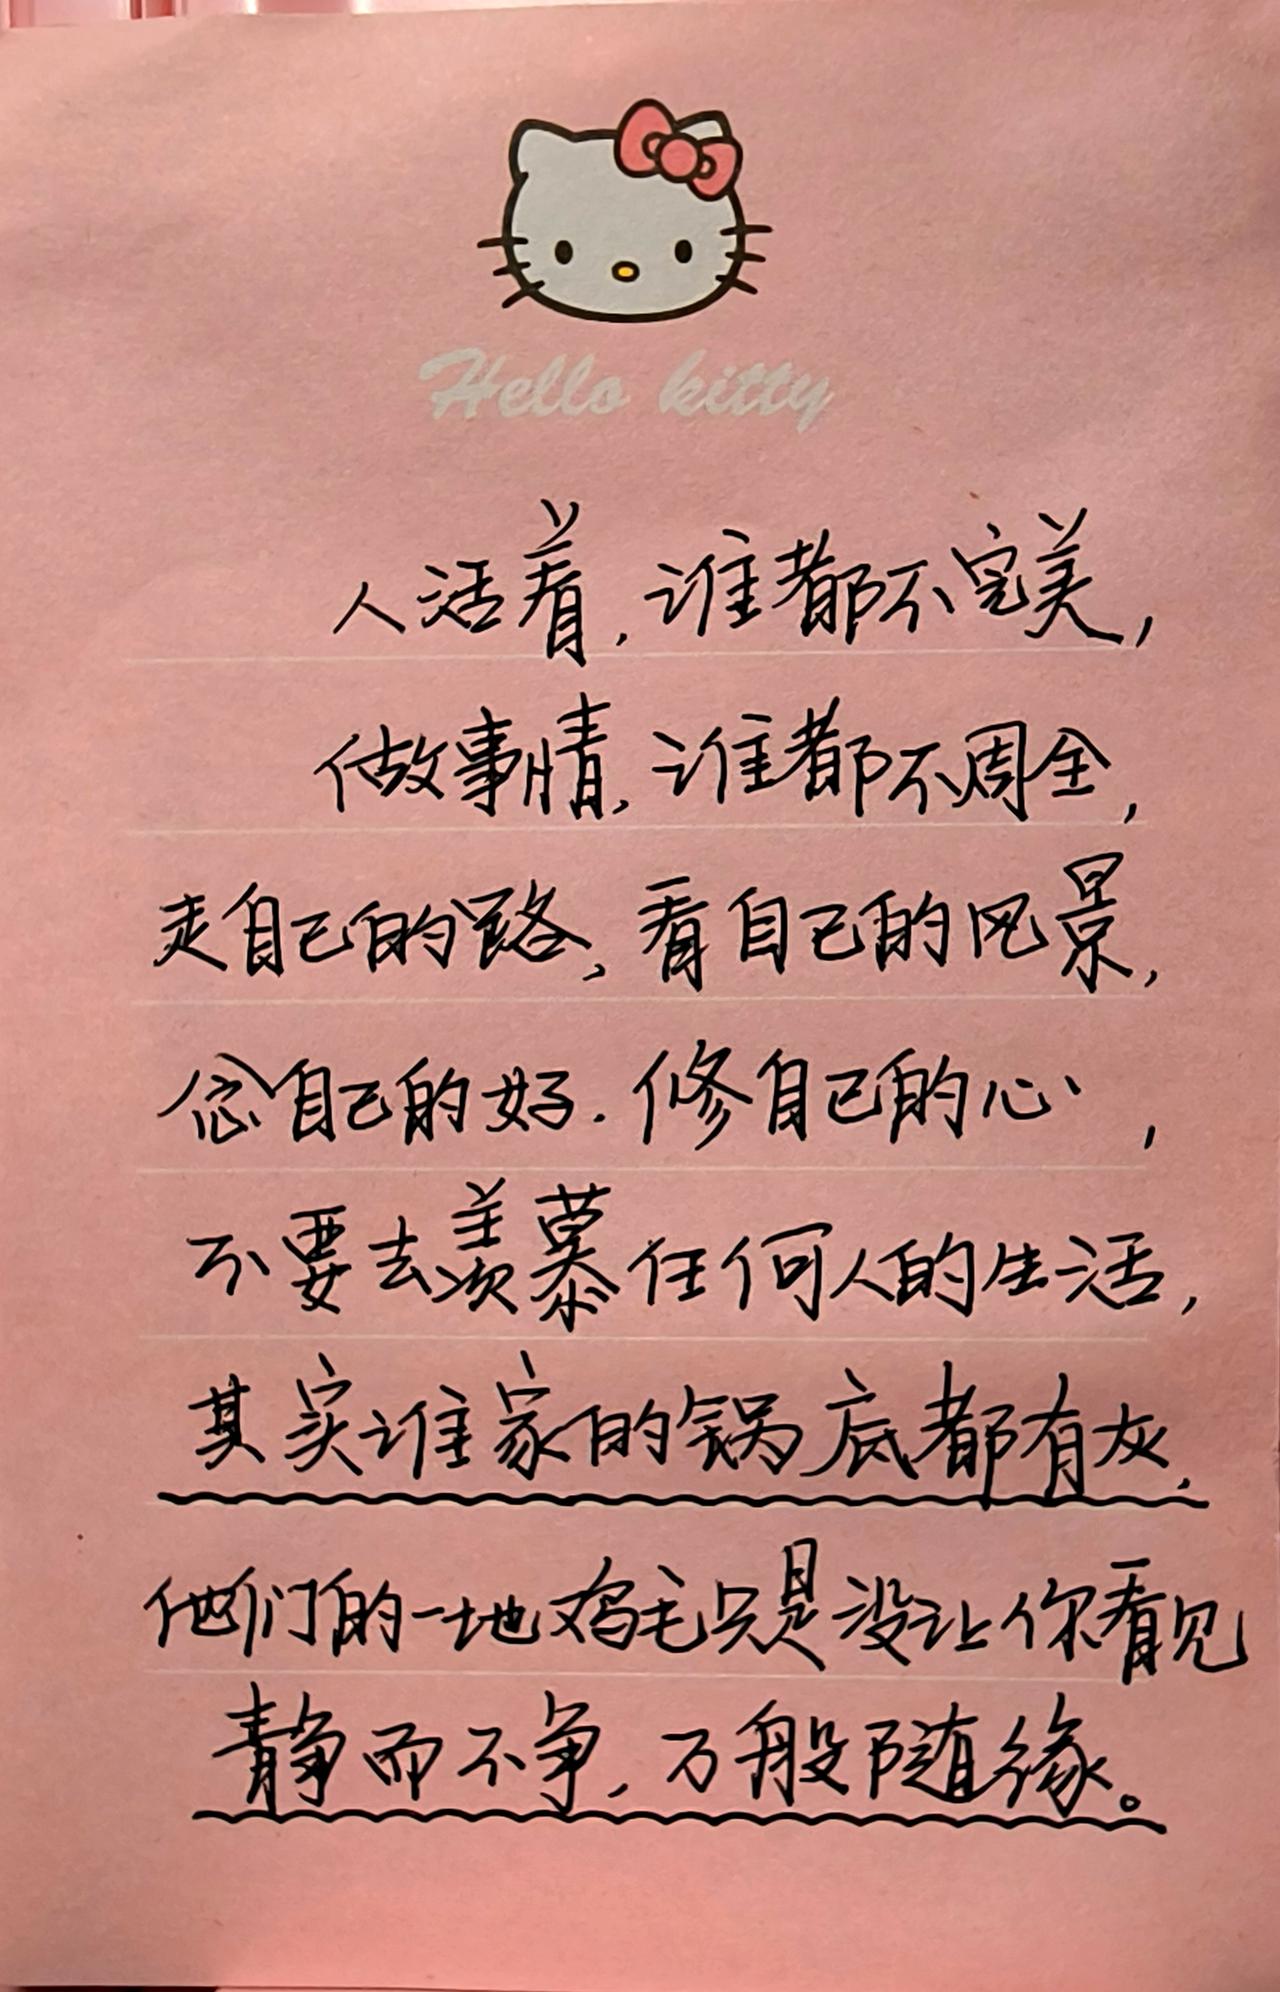 Hello kitty
人活着,谁都不完美,
做事情,谁都不周全,
走自己的路,看自己的风景,
念自己的好.修自己的心,
不要去羡慕任何人的生活,
其实谁家的锅底都有灰,
他们的一地鸡毛只是没让你看见
静而不争,万般随缘。